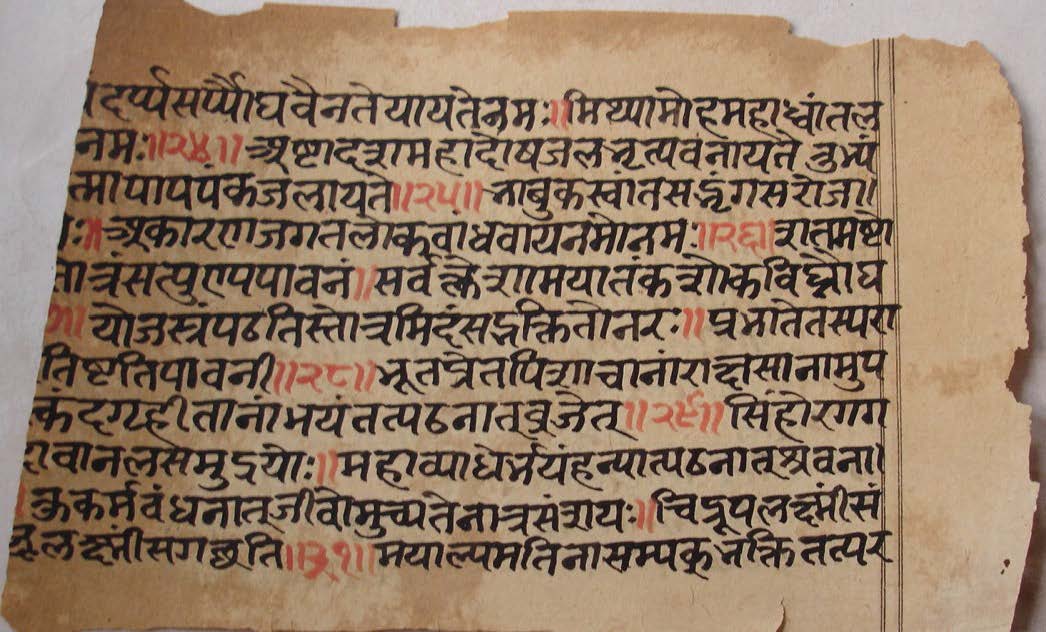 दर्प्पसर्प्पौघवैनतेयायतेनमः॥मिथ्यामोहमहाध्वांतल
नमः॥२४॥ अष्टादशमहादोषजलभृत्पवनायते तुभ्यं
त्मापापपंकजलायते॥२५॥ भाबुकस्वांतसद्भृंगसरोजा
ः॥अकारणजगतलोकवांधवायनमोनमः॥२६॥शतमष्टो
तोत्रंसत्पुण्यपावनं॥सर्वक्लेशामयातंकशोकविघ्नौघ
योजस्त्रंपठतिस्तोत्रमिदंसद्भक्तितोनरः॥प्रभातेतस्परा
तिष्टतिपावनी॥२८॥भूतप्रेतपिशाचानांराक्षसानामुप
कंदगृहीतानांभयंतत्पठनात्व्रजेत्॥२९॥सिंहोरगग
दावानलसमुद्रयोः॥महाव्याधेर्भयंहन्यात्पठनात्श्रवना
कर्मवंधनात्जीवोमुच्यतेनात्रसंशयः॥चिद्रूपलक्ष्मींसं
लक्ष्मींसगछति॥३१॥मयाल्पमतिनासम्पक्भक्तितत्पर